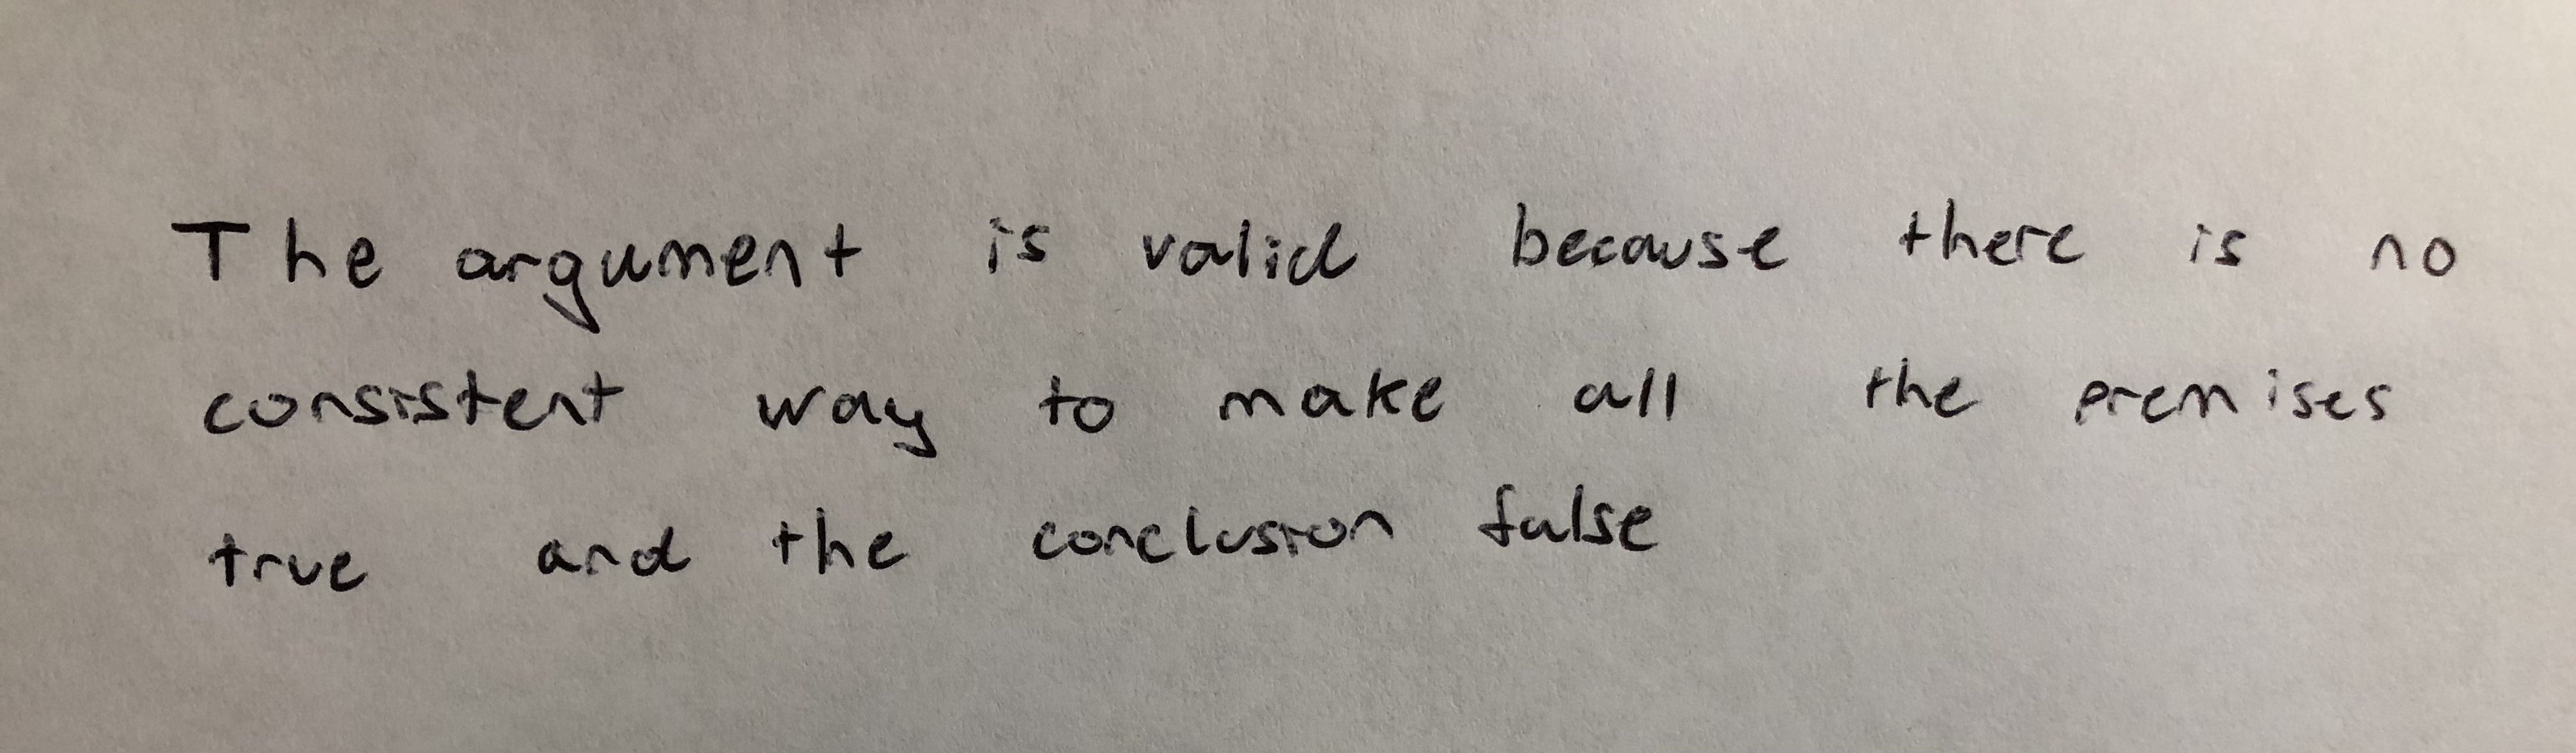 The argument is valid because there is no
consistent way to make all the premises
true and the conclusion false